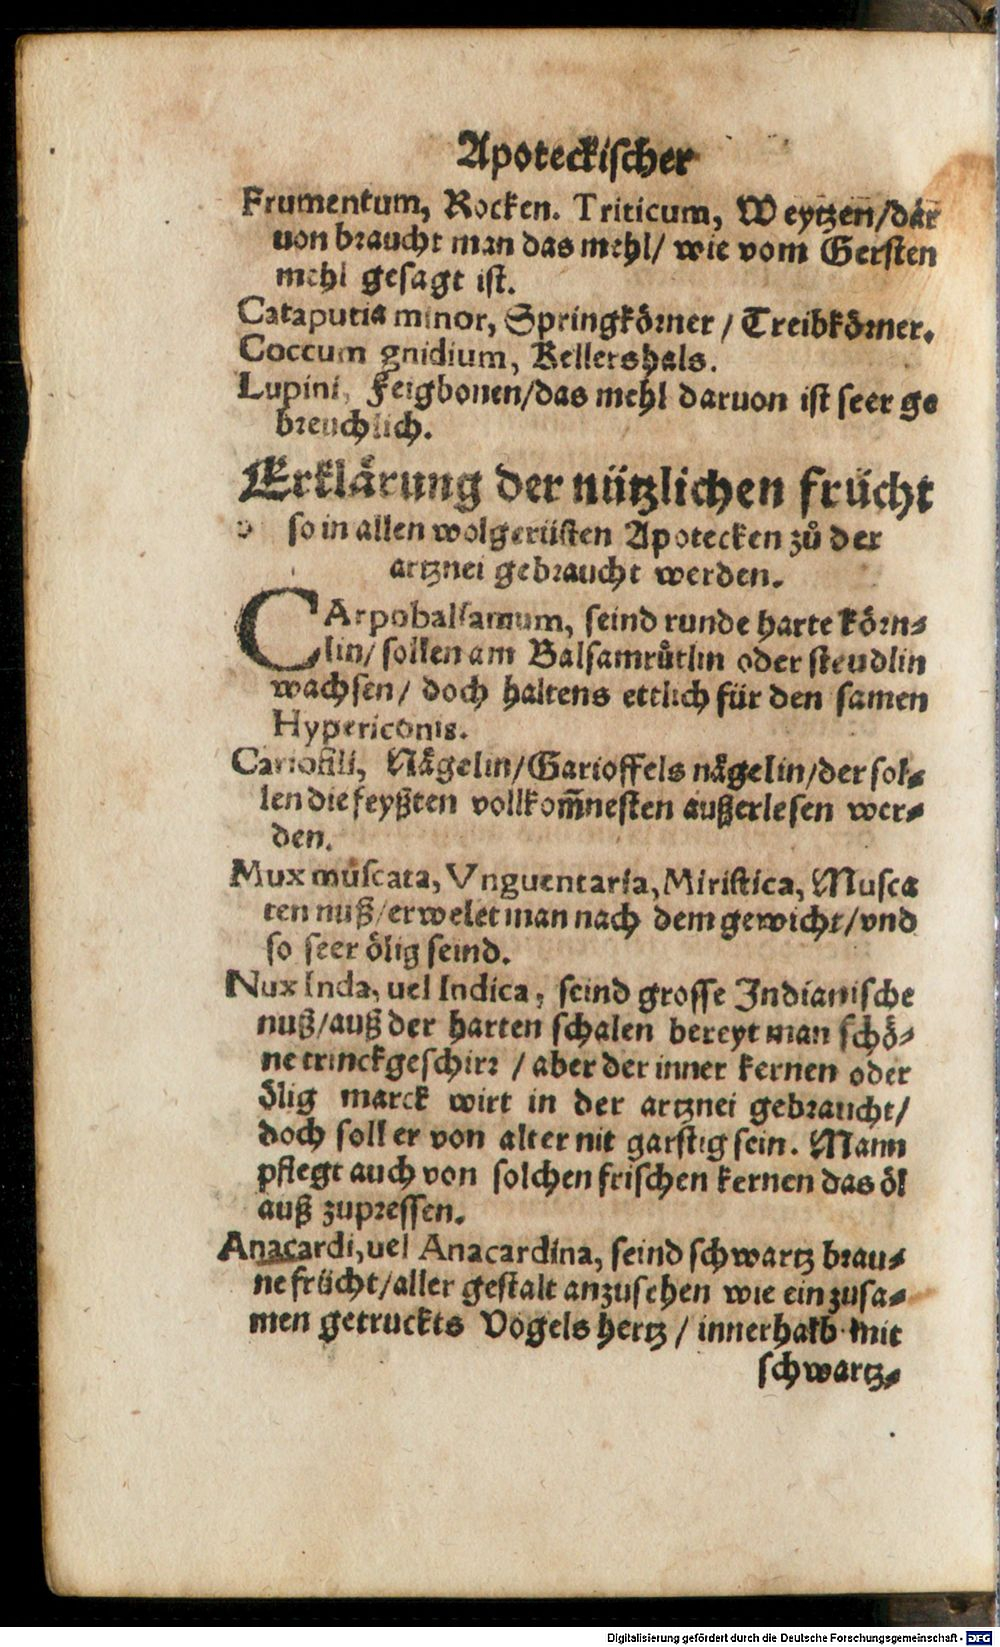 Apoteckischer
Frumentum, Rocken. Triticum, Weytzen/dar
uon braucht man das mehl/ wie vom Gersten
mehl gesagt ist.
Cataputia minor, Springkörner / Treibkörner.
Coccum gnidium, Kellershals.
Lupini, Feigbonen/das mehl daruon ist seer ge
breuchlich.
Erklärung der nützlichen frücht
so in allen wolgerüsten Apotecken zů der
artznei gebraucht werden.
CArpobalsamum, seind runde harte körn-
lin/ sollen am Balsamrůtlin oder steudlin
wachsen/ doch haltens ettlich für den samen
Hypericonis.
Cariofili, Nägelin/Garioffels nägelin/der sol-
len die feyßten vollkom̃nesten außerlesen wer-
den.
Mux muscata, Vnguentaria, Miristica, Musca
ten nuß/erwelet man nach dem gewicht/vnd
so seer ölig seind.
Nux Inda, uel Indica, seind grosse Indianische
nuß/auß der harten schalen bereyt man schö-
ne trinckgeschirr / aber der inner kernen oder
ölig marck wirt in der artznei gebraucht/
doch soll er von alter nit garstig sein. Mann
pflegt auch von solchen frischen kernen das öl
auß zupressen.
Anacardi, uel Anacardina, seind schwartz brau-
ne frücht/aller gestalt anzusehen wie ein zusa-
men getruckts Vogels hertz / innerhalb mit
schwartz-
Digitalisierung gefördert durch die Deutsche Forschungsgemeinschaft - DFG